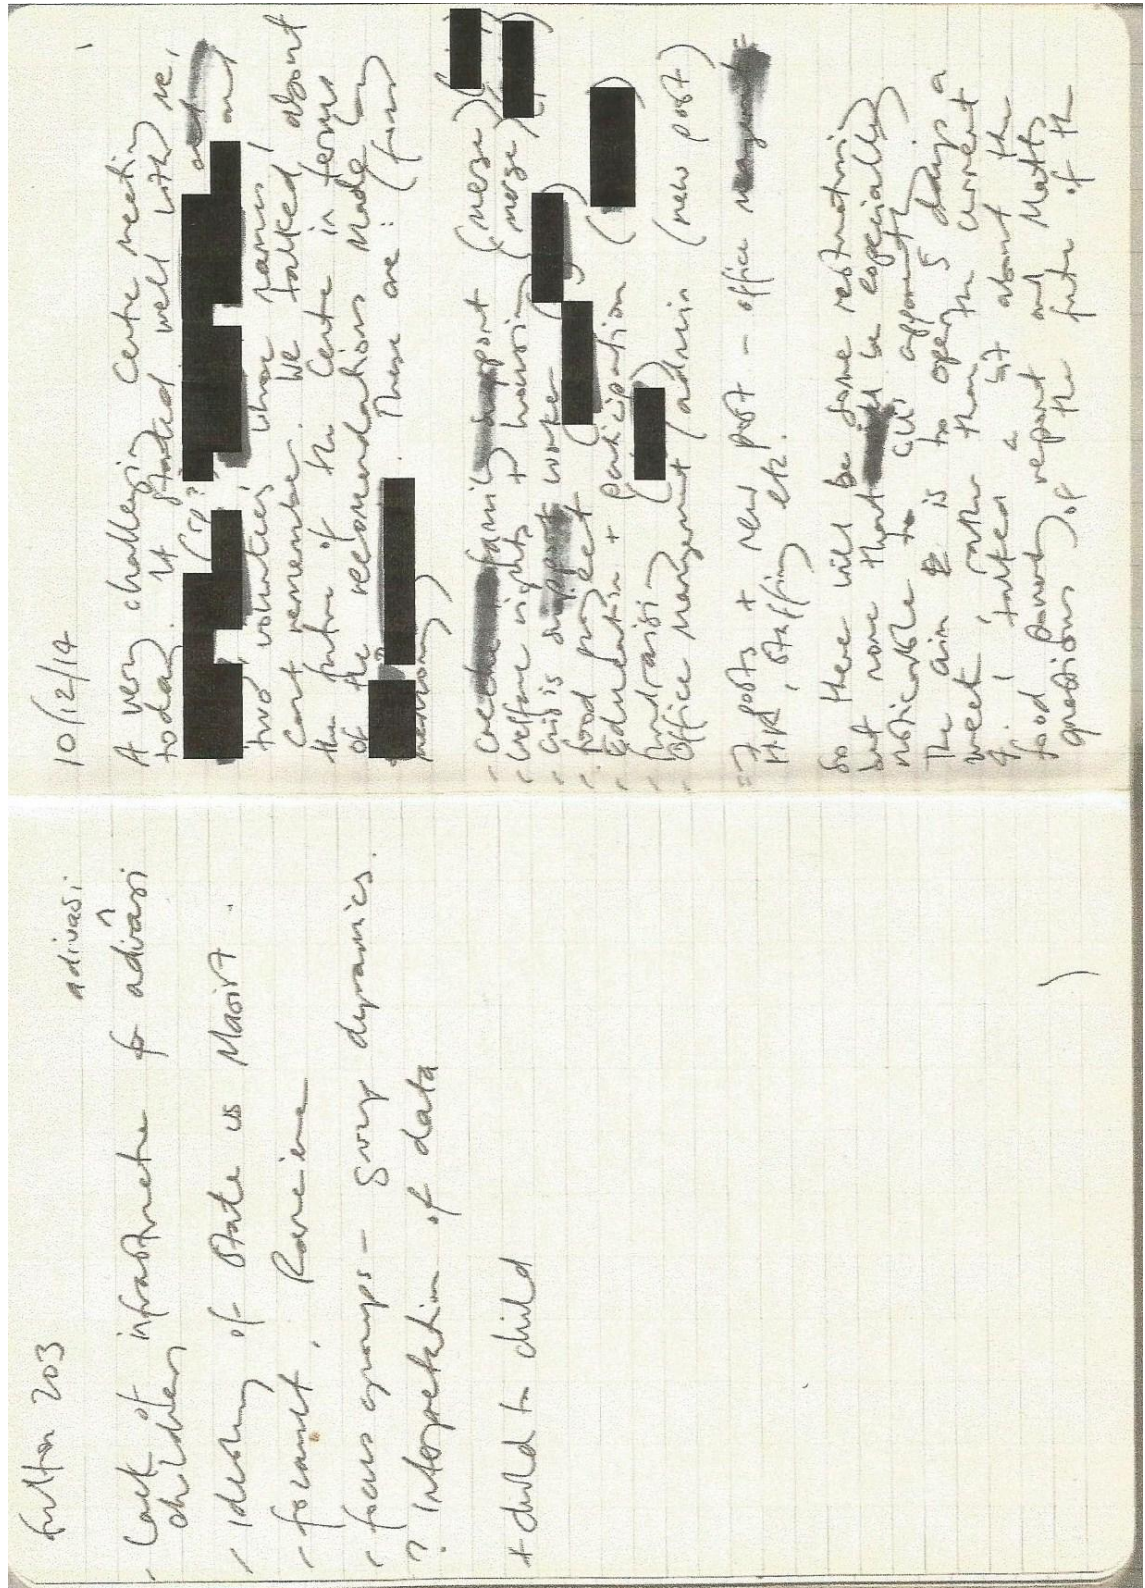 Fulton 203
adivasi
- Lack of infrastructure for adivasi
children
- ideology of state vs Maoist.
- focault, Ranciere
- focus groups - group dynamics.
? interpretation of data
* child to child
10/12/14
A very challenging Centre meeting
today. It started well with me,
(sp?) and
two volunteers, whose names I
cant remember. We talked about
the future of the Centre in terms
of the recommendations made by
. These are: (from
memory)
- family support (merge)
- welfare rights + housing (merge)
- crisis support worker
- food project
- Education + participation (
- fundraising (
- Office management / admin (new post)
=7 posts + new post - office
HR, staffing etc.
So there will be some restructuring
but none that will be especially
noticable to CU, apparently.
The aim is to open 5 days a
week, rather than the current
4. I talked a bit about the
food poverty report and Matt's
questions of the future of the